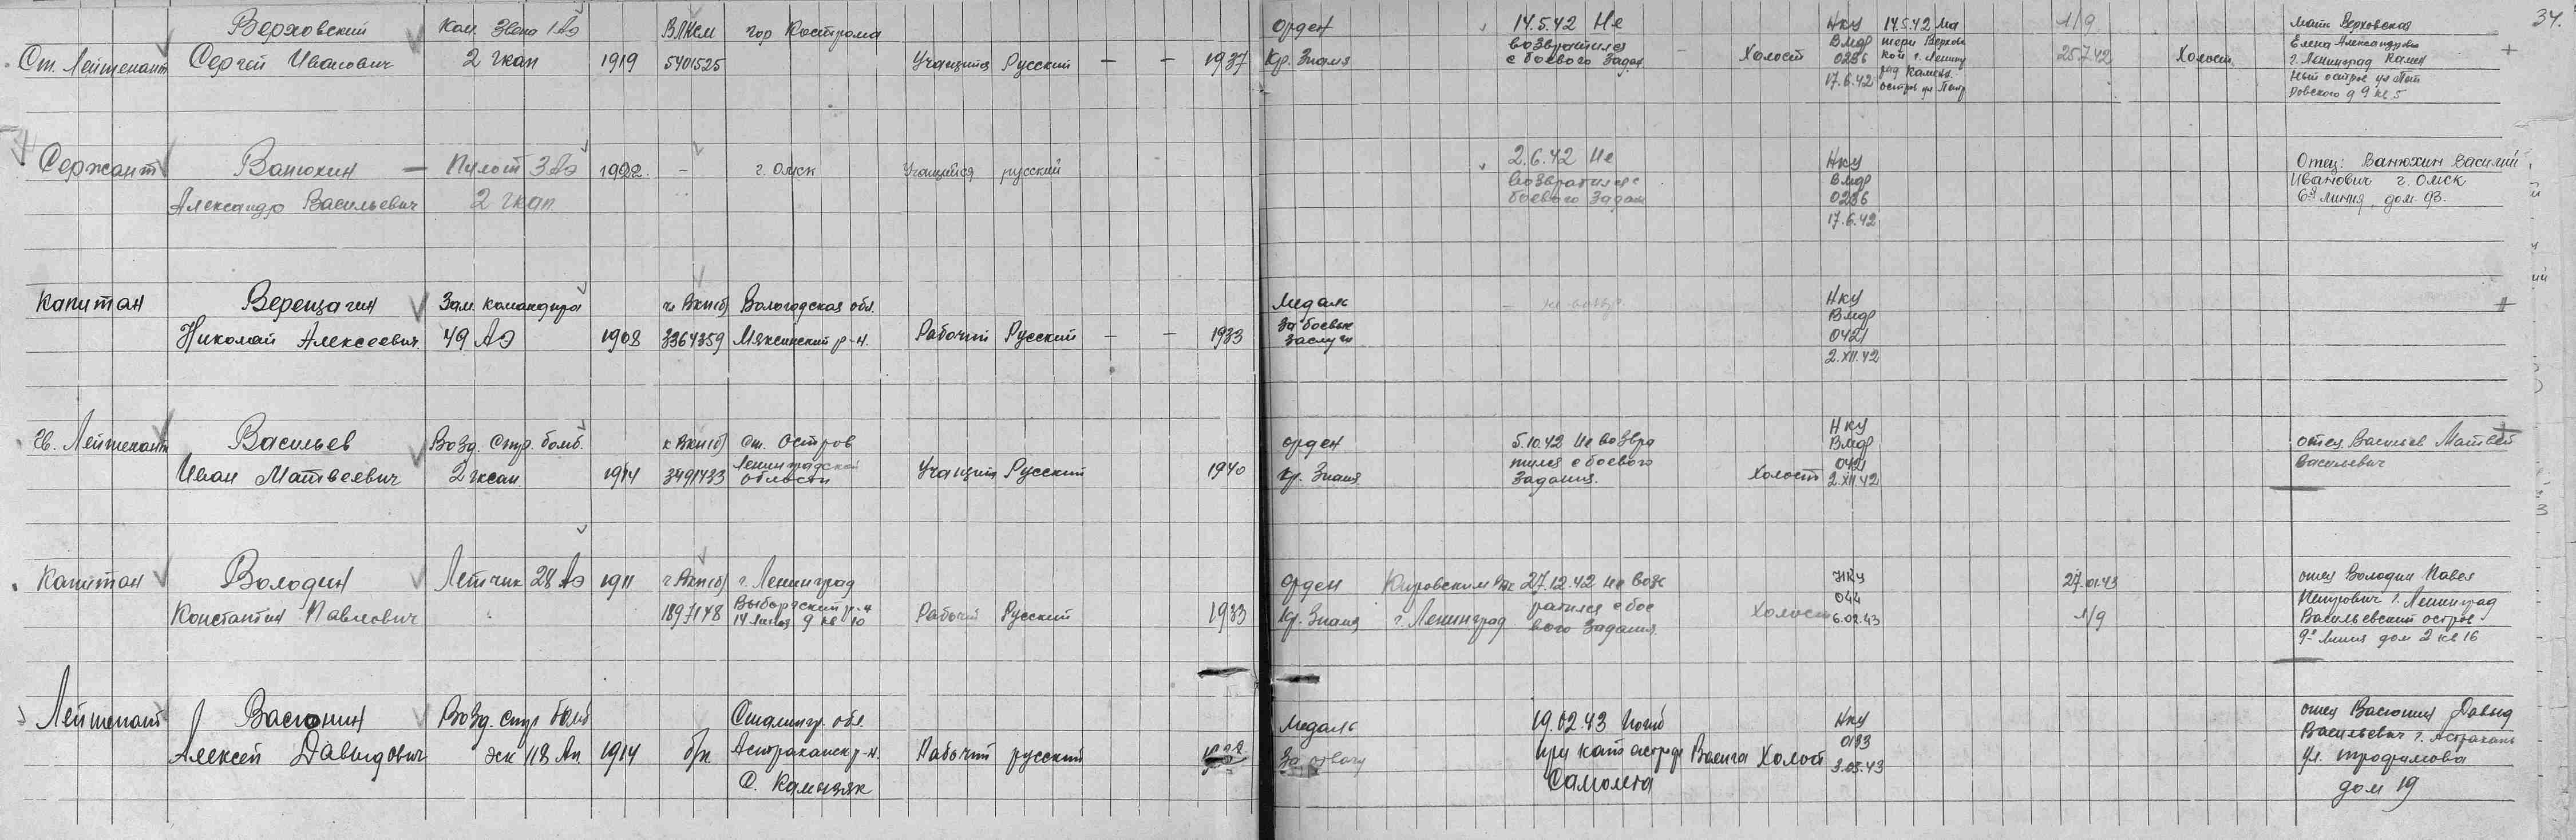 34.
Верховский Ком. Звена 1 АЭ ВЛКСМ гор Кострома Орден 14.5.42 Не НКУ 14.5.42 Ма 1/9 мать Верховская
Ст. Лейтенант Сергей Иванович 2 гкап 1919 5401525 Учащийся Русский — — 1937 Кр. Знамя возвратился с боевого задан — Холост ВМФ тери Верхов 25.7.42 Холост Елена Александровна
0256 кой г. Ленинг г. Ленинград Камен
17.6.42 рад Каменн. ный остров ул
остров ул д 9 кв 5
Сержант Ванюхин — Пилот 3 АЭ 1922 — г. Омск Учащийся русский 2.6.42 Не НКУ Отец: Ванюхин Василий
Александр Васильевич 2 гкап возвратился с ВМФ Иванович г. Омск
боевого задан 0256 6я линия, дом 93.
17.6.42
Капитан Верещагин Зам. командира чл ВКП(б) Вологодская обл. Медаль — не возвр. НКУ
Николай Алексеевич 49 АЭ 1908 3364359 Мяксинский р-н. Рабочий Русский — — 1933 За боевые ВМФ
заслуги 0421
2.XII.42
Лейтенант Васильев Возд. Стр. бомб. к ВКП(б) ст. Остров орден 5.10.42 Не возвра НКУ отец Васильев Матвей
Иван Матвеевич 2 гкап 1914 3491433 Ленинградской Учащийся Русский 1940 Кр. Знамя тился с боевого Холост ВМФ Васильевич
области задания. 0421
2.XII.42
Капитан Володин Летчик 28 АЭ 1911 ч ВКП(б) г. Ленинград Орден Кировским РВК 27.12.42 не возв НКУ 27.01.43 отец Володин Павел
Константин Павлович 1897148 Выборгский р-н Рабочий Русский 1933 Кр. Знамя г. Ленинград ратился с бое Холост 044 1/9 Петрович г. Ленинград
14 линия 9 кв 10 вого задания. 6.02.43 Васильевский остров
9я линия дом 2 кв 16
Лейтенант Васюнин Возд. стр бомб Сталингр. обл. Медаль 19.02.43 Погиб НКУ отец Васюнин Давыд
Алексей Давыдович эк 118 Ап 1914 б/п Астраханск р-н. Рабочий русский За отвагу при катастрофе Ваенга Холост 0183 Васильевич г. Астрахань
С. Камызяк самолета 3.03.43 ул. Трофимова
дом 19